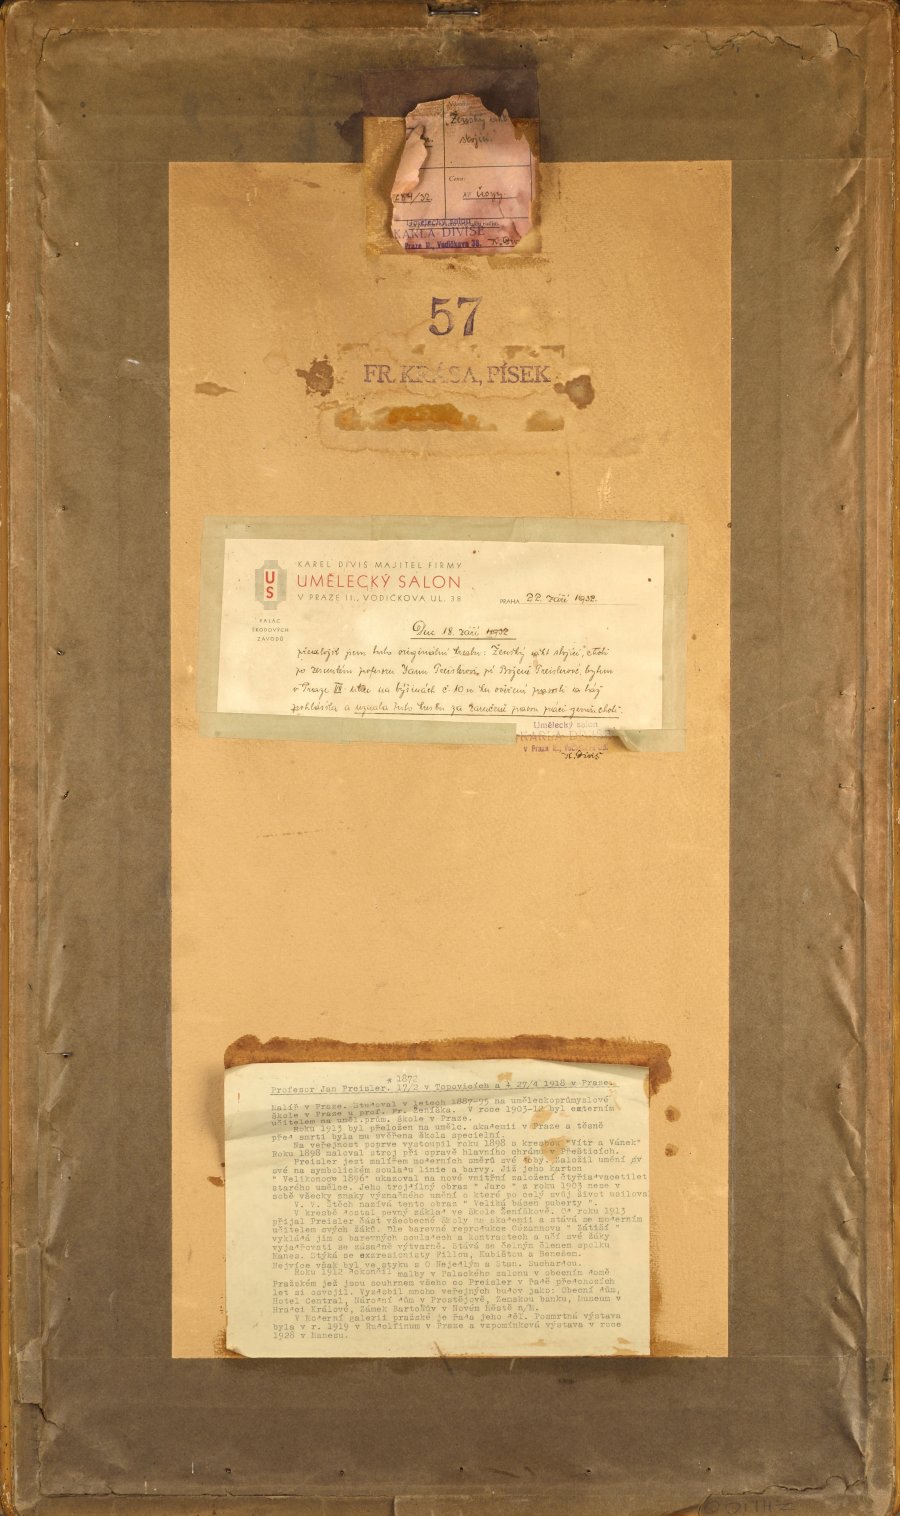 "Ženský
stojící"
Cena:
684/32
Umělecký salon
KARLA DIVIŠE
Praze II., Vodičkova 38.
57
FR. KRÁSA, PÍSEK
KAREL DIVIŠ MAJITEL FIRMY
UMĚLECKÝ SALON
V PRAZE II., VODIČKOVA UL. 38
US
PALÁC
ŠKODOVÝCH
ZÁVODŮ
PRAHA 22. září 1932.
Dne 18. září 1932
předložil jsem tuto originální kresbu: Ženský akt stojící, choti
po zesnulém profesoru Janu Preislerovi, pí Boženě Preislerové bytem
v Praze na výšinách č. 10 n ku ověření pravosti a táž
prohlásila a uznala tuto kresbu za zaručeně pravou práci zemř. choti.
Umělecký salon
KARLA DIVIŠE
v Praze II., Vodičkova 38.
K. Diviš
* 1872
Profesor Jan Preisler. 17/2 v Topovicích a + 27/4 1918 v Praze.
Malíř v Praze. Studoval v letech 1887-95 na uměleckoprůmyslové
škole v Praze u prof. Fr. Ženíška. V roce 1903-12 byl externím
učitelem na uměl.prům. škole v Praze.
Roku 1913 byl přeložen na umělc. akademii v Praze a těsně
před smrtí byla mu svěřena škola specielní.
Na veřejnost poprve vystoupil roku 1898 s kresbou "Vítr a Vánek"
Roku 1898 maloval stroj při opravě hlavního chrámu v Přešticích.
Preisler jest malířem moderních směrů své doby. Založil umění
své na symbolickém souladu linie a barvy. Již jeho karton
" Velikonoce 1896" ukazoval na nové vnitřní založení čtyřiadvacetilet
starého umělce. Jeho trojdílný obraz " Jaro " z roku 1903 nese v
sobě všecky znaky význačného umění o které po celý svůj život usilova
V. V. Štěch nazývá tento obraz " Veliká báseň puberty ".
V kresbě dostal pevný základ ve škole Ženíškově. Od roku 1913
přijal Preisler část všeobecné školy na akademii a stává se moderním
učitelem svých žáků. Dle barevné reprodukce Cezannova " Zátiší "
vykládá jim o barevných souladech a kontrastech a učí své žáky
vyjadřovati se zásadně výtvarně. Stává se čelným členem spolku
Manes. Stýká se exzresionisty Fillou, Kubištou a Benešem.
Nejvíce však byl ve styku s O Nejedlým a Stan. Suchardou.
Roku 1912 dokončil malby v Palackého salonu v obecním domě
Pražském jež jsou souhrnem všeho co Preisler v řadě předchozích
let si osvojil. Vyzdobil mnoho veřejných budov jako: Obecní dům,
Hotel Central, Národní dům v Prostějově, Zemskou banku, Museum v
Hradci Králové, Zámek Bartoňův v Novém Městě n/M.
V Moderní galerii pražské je řada jeho děl. Posmrtná výstava
byla v r. 1919 v Rudolfinum v Praze a vzpomínková výstava v roce
1928 v Manesu.